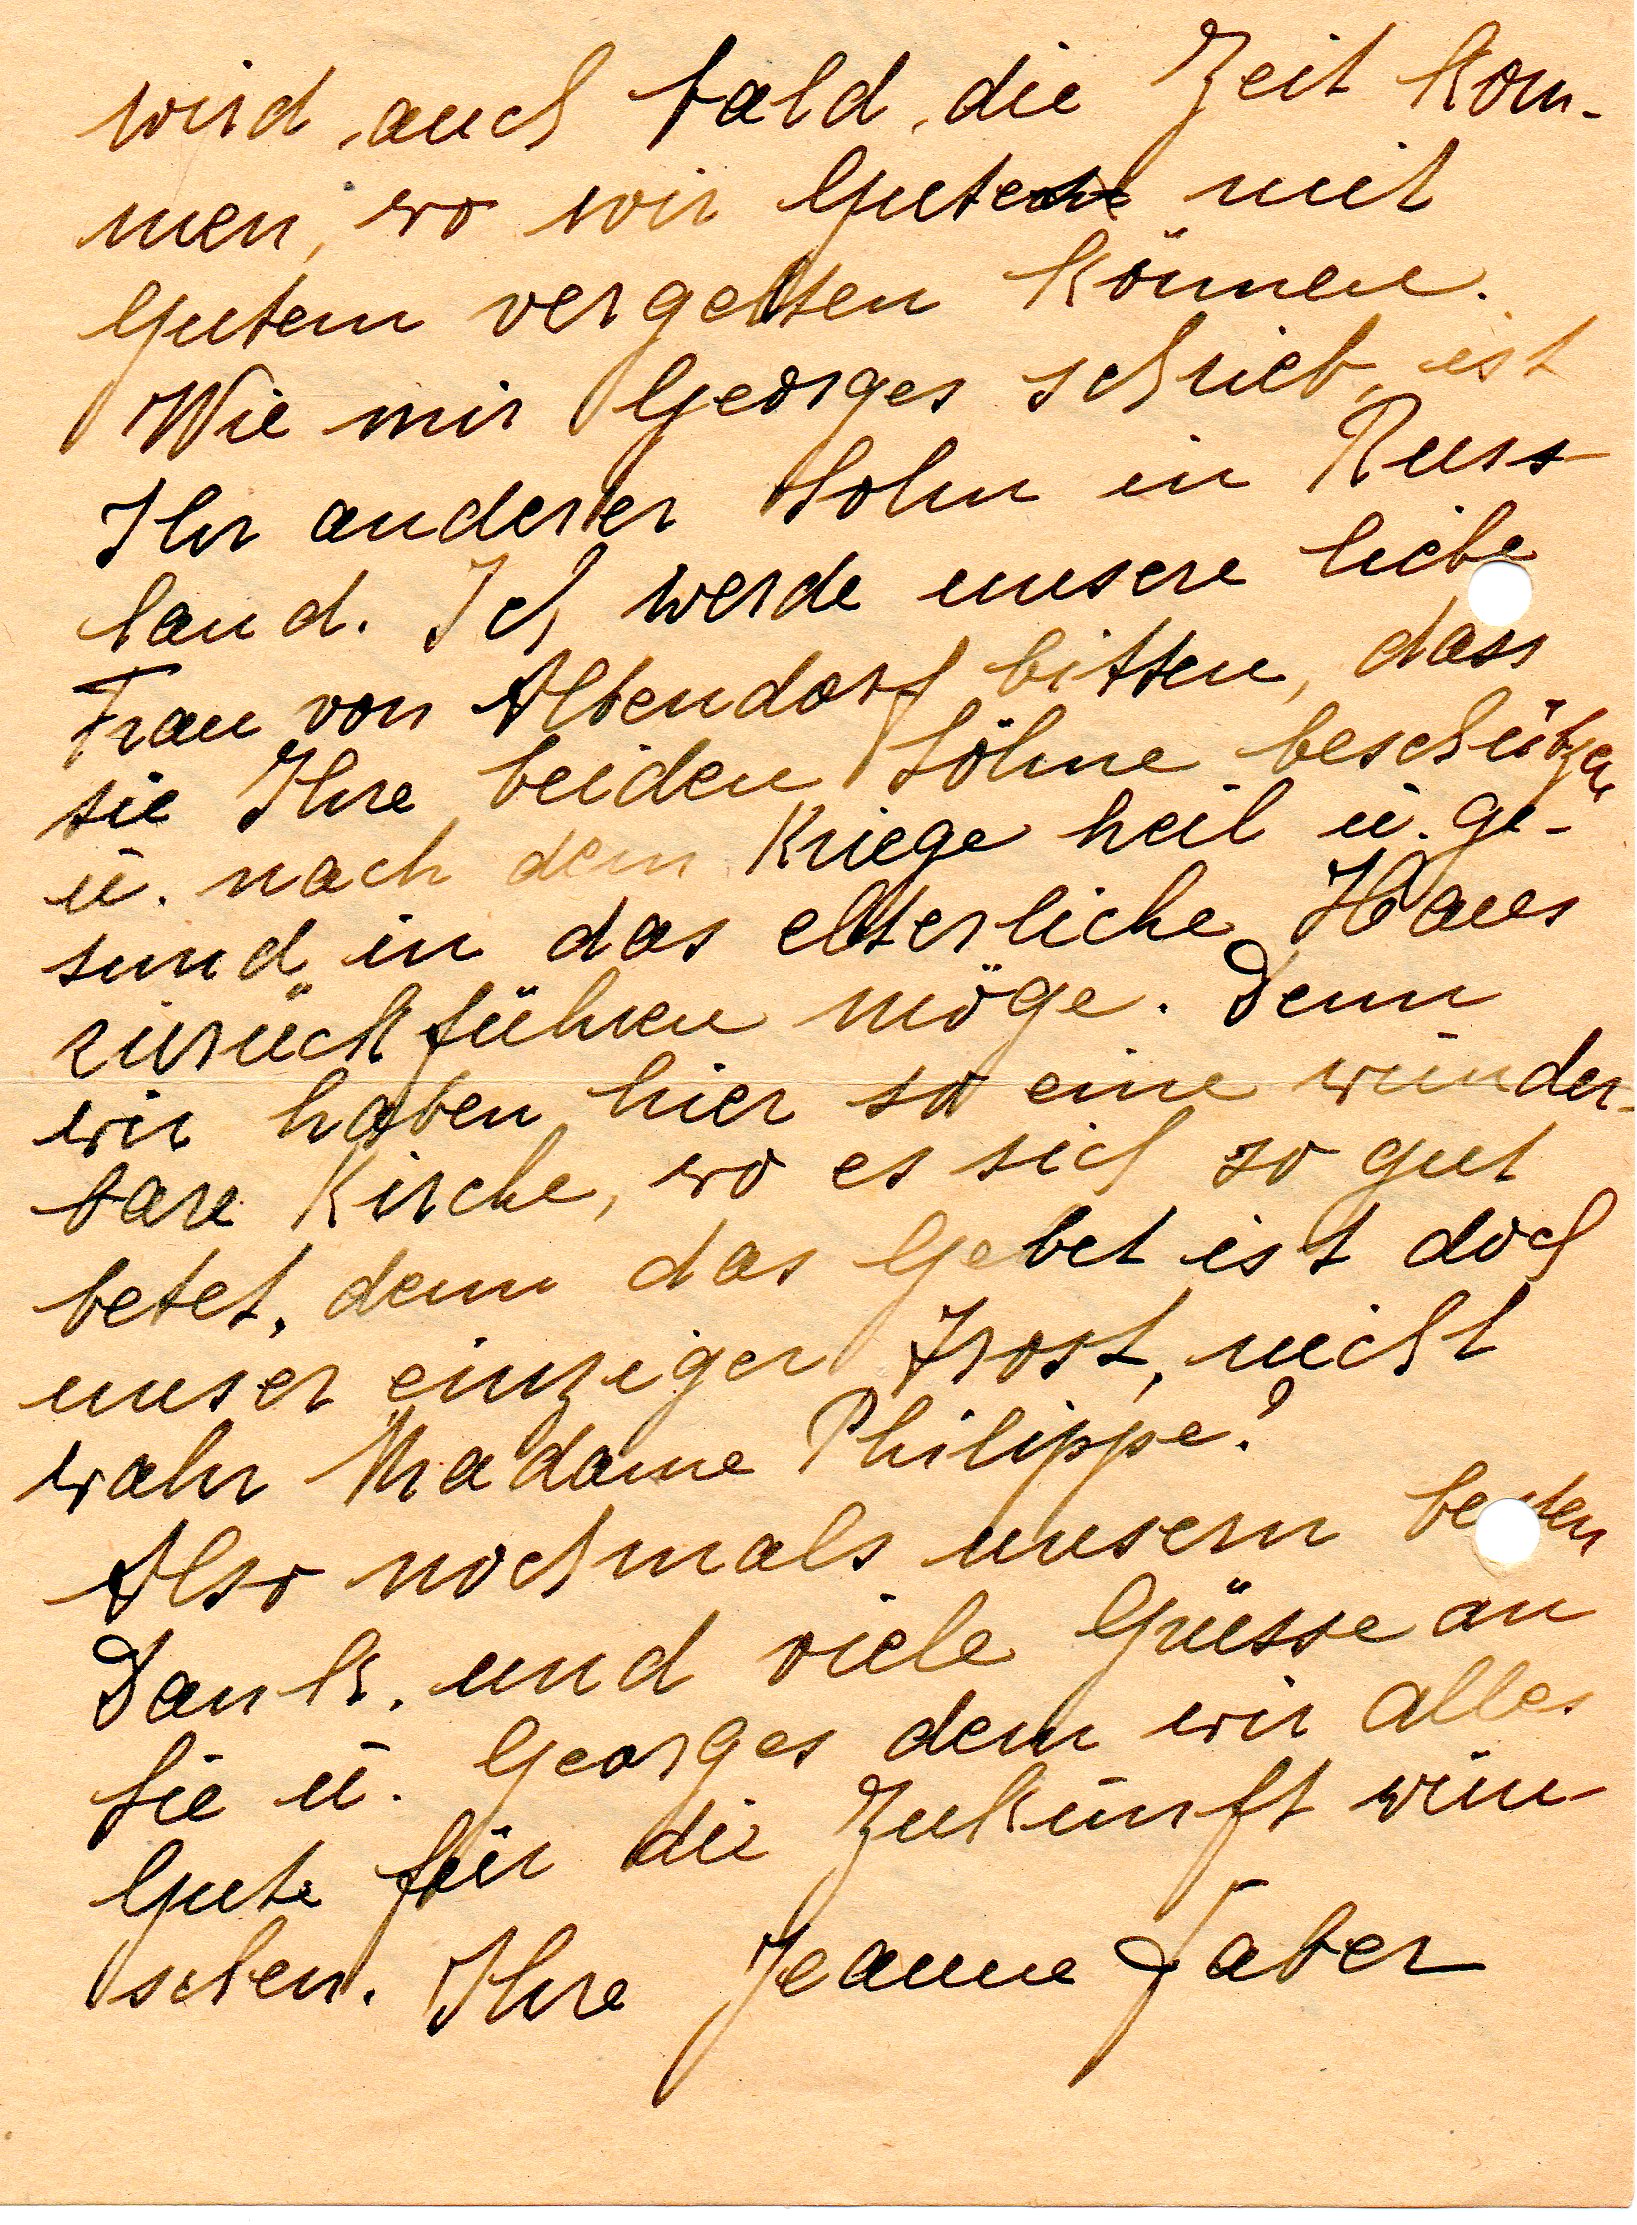 wird auch bald die Zeit kom-
men, wo wir Gutes mit
Gutem vergelten können.
Wie mir Georges schrieb, ist
Ihr anderer Sohn in Russ-
land. Ich werde unsere liebe
Frau von Albendorf bitten, dass
sie Ihre beiden Söhne beschützen
ü. nach dem Kriege heil ü. ge-
sund in das elterliche Haus
zurückführen möge. Denn
wir haben hier so eine wunder-
bare Kirche, wo es sich so gut
betet, denn das Gebet ist doch
unser einziger Trost, nicht
wahr Madame Philippe?
Also nochmals unsern besten
Dank, und viele Grüsse an
Sie ü. Georges dem wir alles
Gute für die Zukunft wün-
schen. Ihre Jeanne Faber